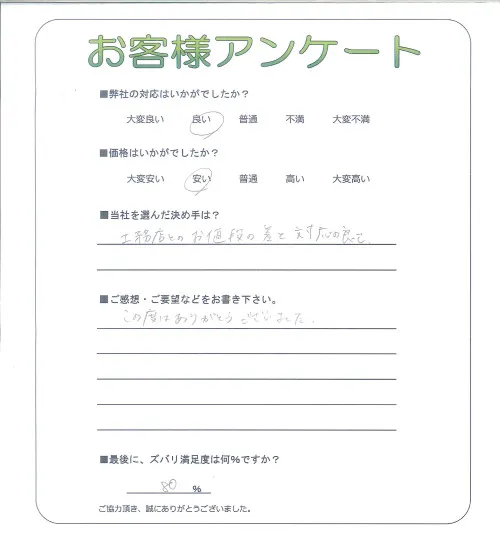 お客様アンケート
■弊社の対応はいかがでしたか？
大変良い 良い 普通 不満 大変不満
■価格はいかがでしたか？
大変安い 安い 普通 高い 大変高い
■当社を選んだ決め手は？
工務店とのお値段の差と対応の良さ。
■ご感想・ご要望などをお書き下さい。
この度はありがとうございました。
■最後に、ズバリ満足度は何%ですか？
80 %
ご協力頂き、誠にありがとうございました。